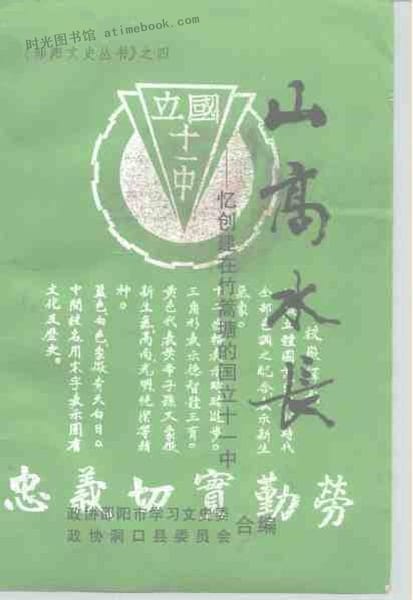 时光图书馆 atimebook.com
《邵阳文史丛书》之四
國立
十一中
山高水長
——忆创建在竹篙塘的国立十一中
全部色调之配合表示新生
气象。
三角形表示德智体三育。
黄色代表炎黄子孙又象征
新生蓝高尚光明纯洁等精
神。
蓝色白色象征青天白日。
中间校名用宋字表示固有
文化及历史。
忠義切實勤勞
政协邵阳市学习文史委
政协洞口县委员会
合编